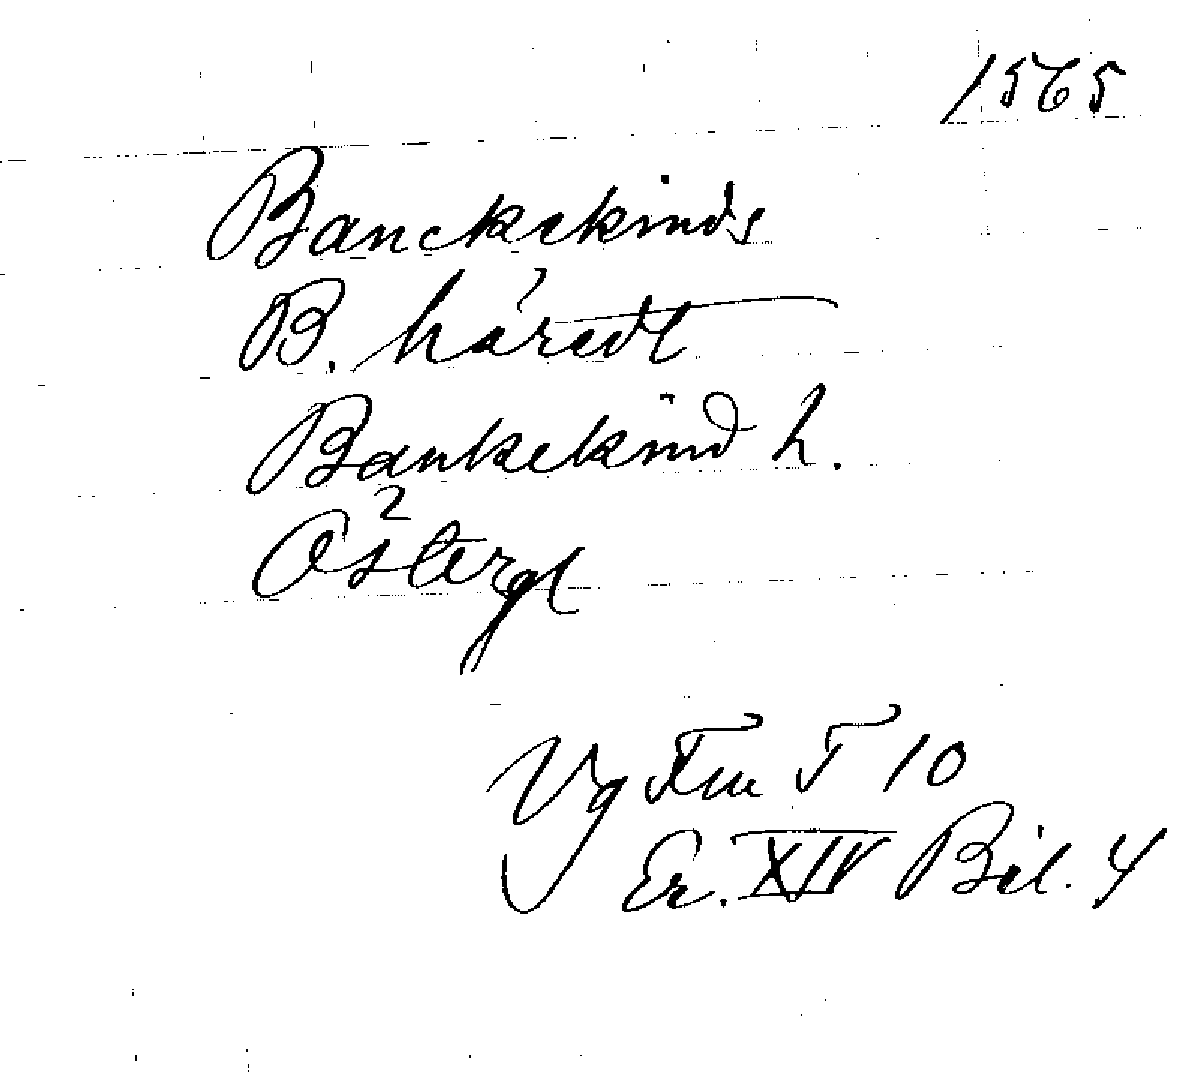 1565
Banckekinds
B. häredt
Bankekind h.
Östergl
Vg Fm T 10
Er. XIV Bil. 4